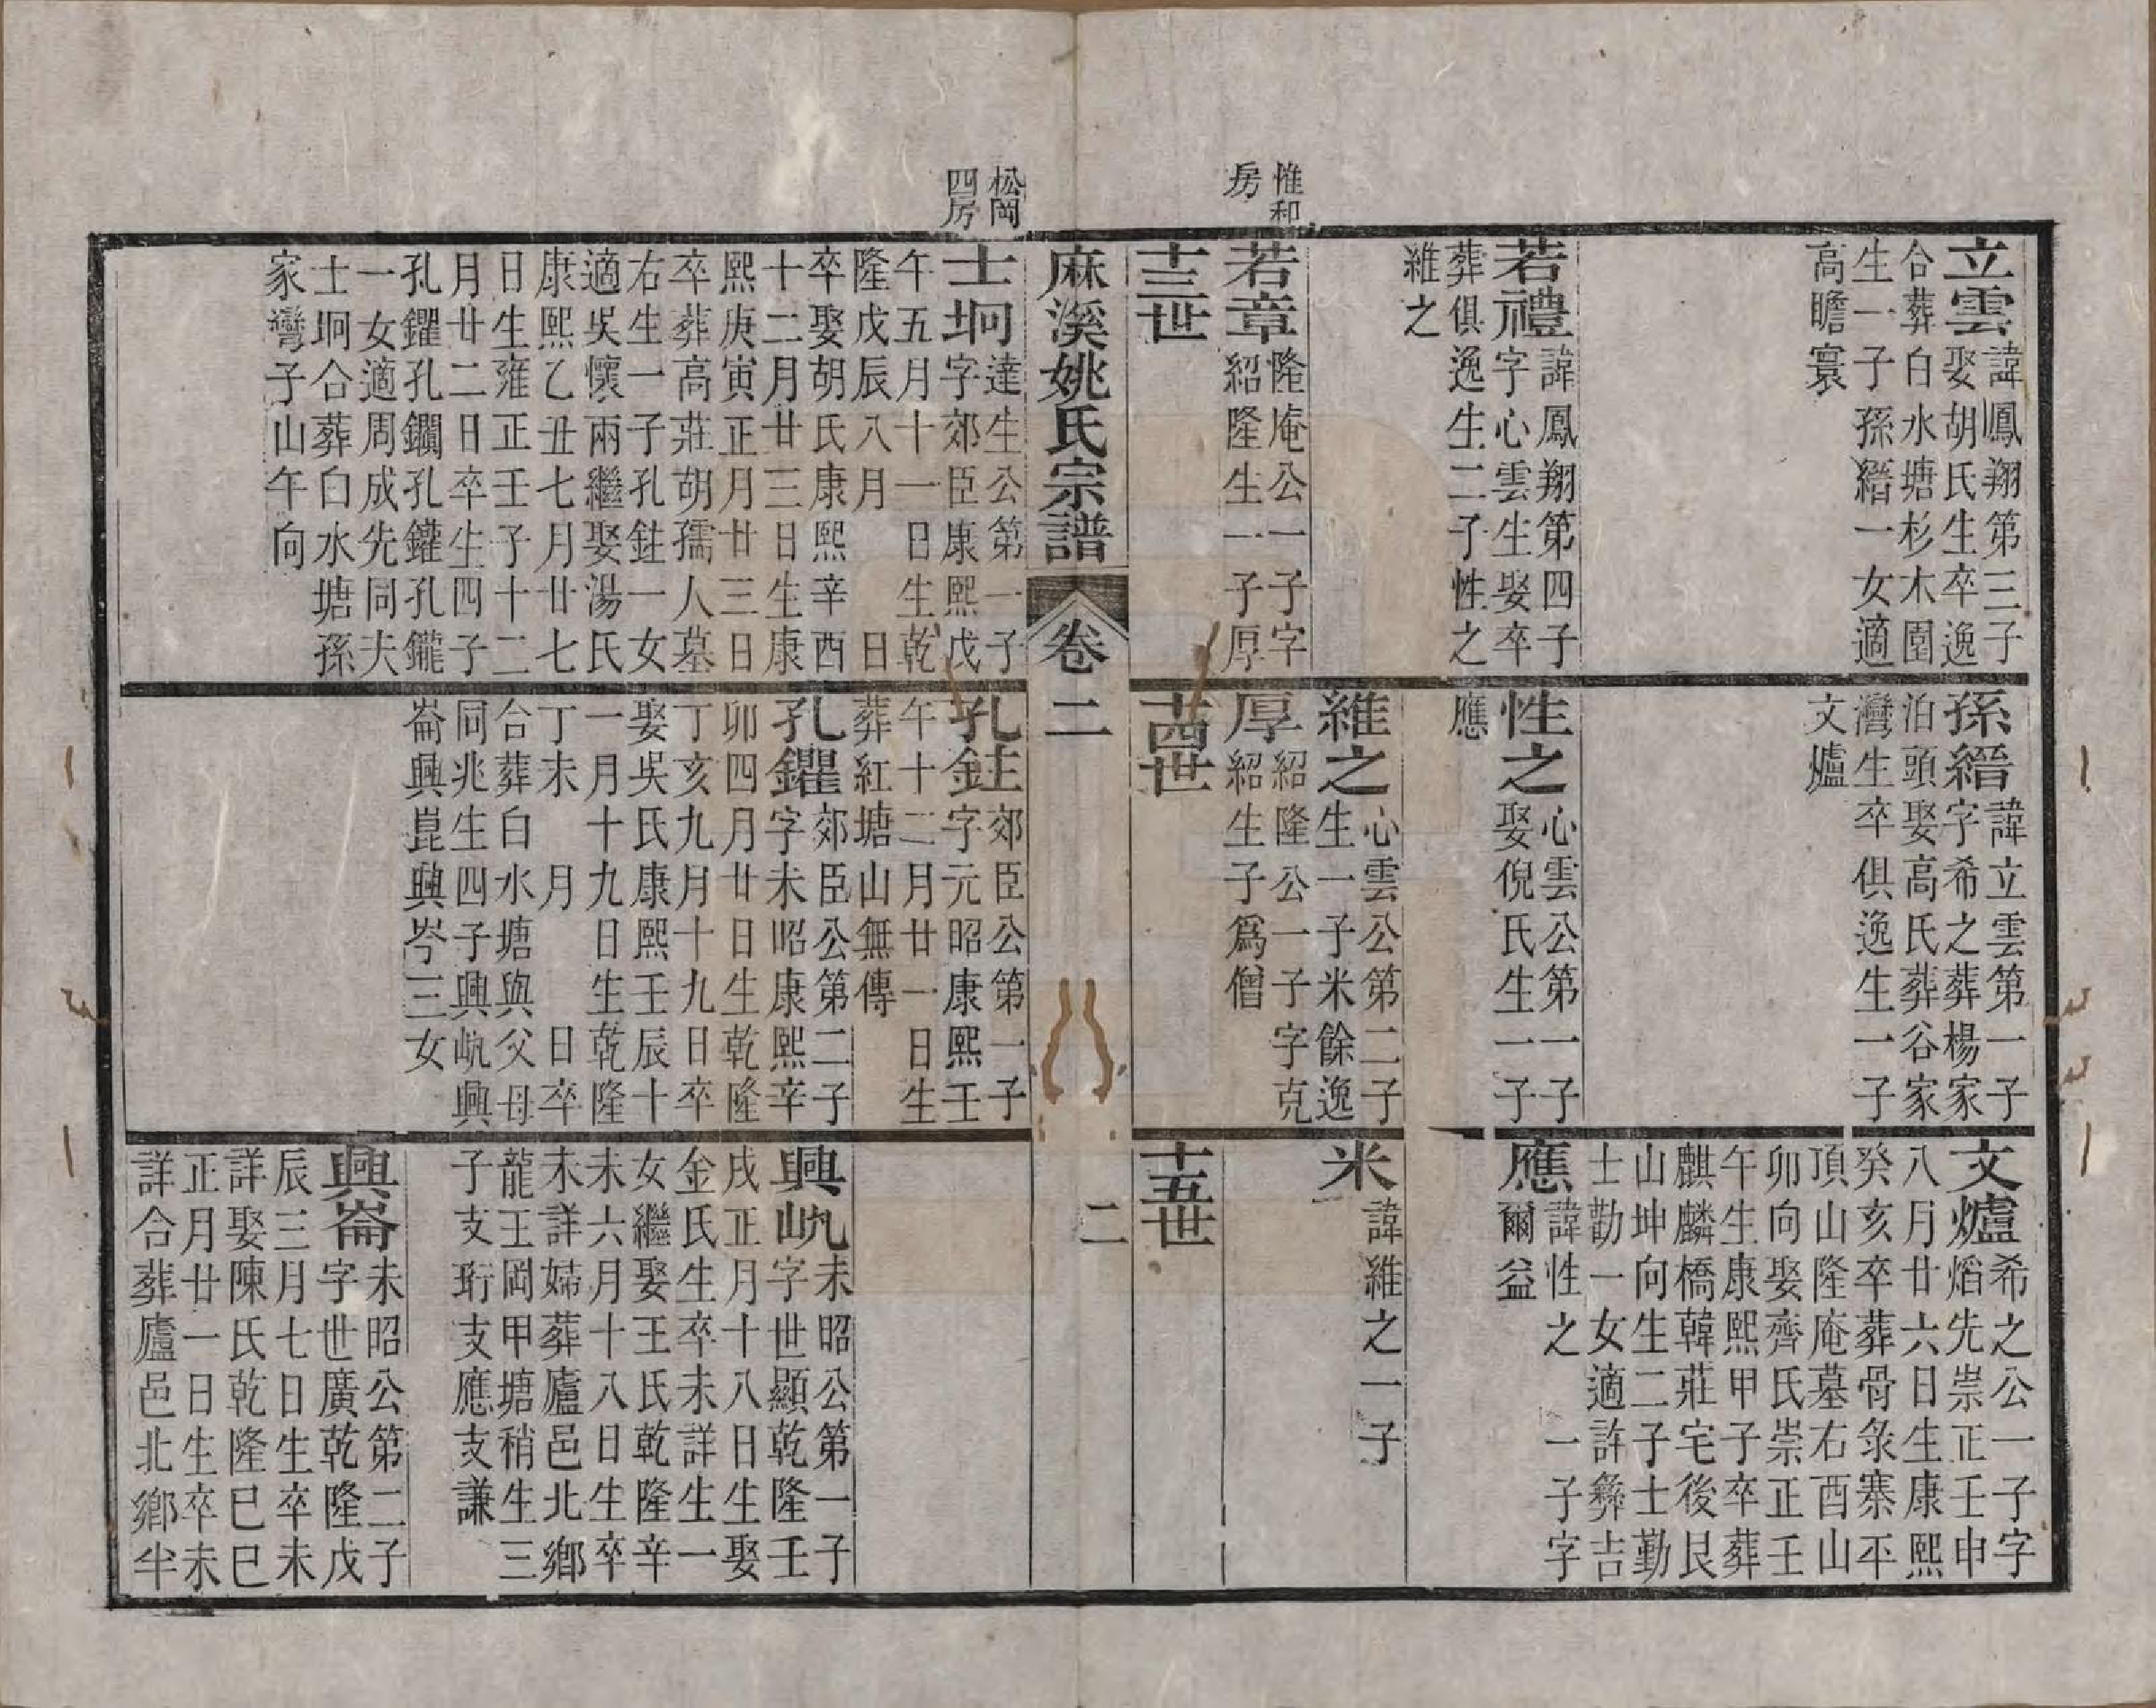 惟和
房
松岡
四房
立雲
諱鳳翔第三子
娶胡氏生卒逸
合葬白水塘杉木園
生一子孫縉一女適
高瞻寰
若禮
諱鳳翔第四子
字心雲生娶卒
葬俱逸生二子性之
維之
若章
隆庵公一子字
紹隆生一子厚
十三世
孫縉
諱立雲第一子
字希之葬楊家
泊頭娶高氏葬谷家
灣生卒俱逸生一子
文爐
性之
心雲公第一子
娶倪氏生一子
應
維之
心雲公第二子
生一子米餘逸
厚
紹隆公一子字克
紹生子為僧
十四世
文爐
希之公一子字
熖先崇正壬申
八月廿六日生康熙
癸亥卒葬骨彔寨平
頂山隆庵墓右酉山
卯向娶齊氏崇正壬
午生康熙甲子卒葬
麒麟橋韓莊宅後艮
山坤向生二子士勤
士勸一女適許彜吉
應
諱性之一子字
爾益
米
諱維之一子
十五世
麻溪姚氏宗譜
卷二
二
士坰
達生公第一子
字郊臣康熙戊
午五月十一日生乾
隆戊辰八月 日
卒娶胡氏康熙辛酉
十二月廿三日生康
熙庚寅正月廿三日
卒葬高莊胡孺人墓
右生一子孔鉒一女
適吳懷兩繼娶湯氏
康熙乙丑七月廿七
日生雍正壬子十二
月廿二日卒生四子
孔鑺孔钃孔鑵孔鑨
一女適周成先同夫
士坰合葬白水塘孫
家灣子山午向
孔鉒
郊臣公第一子
字元昭康熙壬
午十二月廿一日生
葬紅塘山無傳
孔鑺
郊臣公第二子
字未昭康熙辛
卯四月廿日生乾隆
丁亥九月十九日卒
娶吳氏康熙壬辰十
一月十九日生乾隆
丁未 月 日卒
合葬白水塘與父母
同兆生四子興岏興
崙興崑興岑三女
興岏
未昭公第一子
字世顯乾隆壬
戌正月十八日生娶
金氏生卒未詳生一
女繼娶王氏乾隆辛
未六月十八日生卒
未詳婦葬廬邑北鄉
龍王岡甲塘稍生三
子支珩支應支謙
興崙
未昭公第二子
字世廣乾隆戊
辰三月七日生卒未
詳娶陳氏乾隆巳巳
正月廿一日生卒未
詳合葬廬邑北鄉半